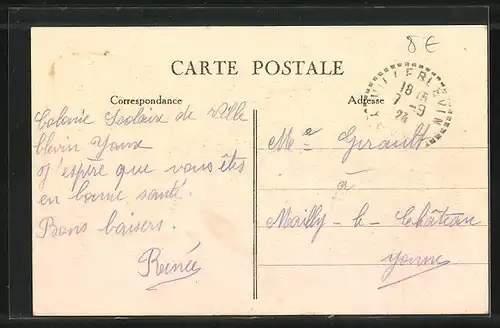 8 €
CARTE POSTALE
Correspondance
Adresse
VILLEBLEVIN
18 15
7 - 9
23
Colonie Scolaire de Ville
blevin Yonne
J'espère que vous êtes
en bonne santé.
Bons baisers.
Renée
Me Girault
à
Mailly - le - Château
Yonne